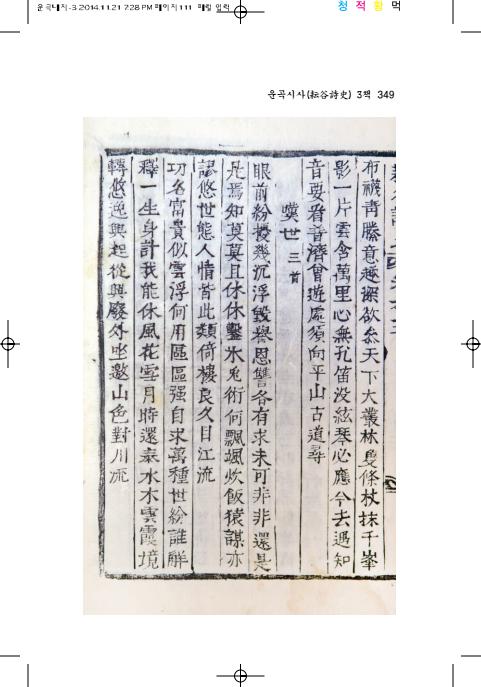 운곡대지-3 2014.11.21 7:28 PM 페이지111 매킬 입력
청 적 황 먹
운곡시사(耘谷詩史) 3책 349
布襪靑縢意趣深欲叅天下大叢林隻條杖抹千峯
影一片雲含萬里心無孔笛没絃琴心應今去遇知
音要看普濟曾遊處須向平山古道尋
嘆世 三首
眼前紛擾幾沉浮毀譽恩讐各有求未可非非還是
是焉知莫莫且休休鑿氷鬼術何飄颯炊飯猿謀亦
謬悠世態人情皆此類倚樓良久目江流
功名富貴似雲浮何用區區强自求萬種世紛誰解
釋一生身計我能休風花雪月時還泰水木雲霞境
轉悠逸興起從興廢外坐邀山色對川流